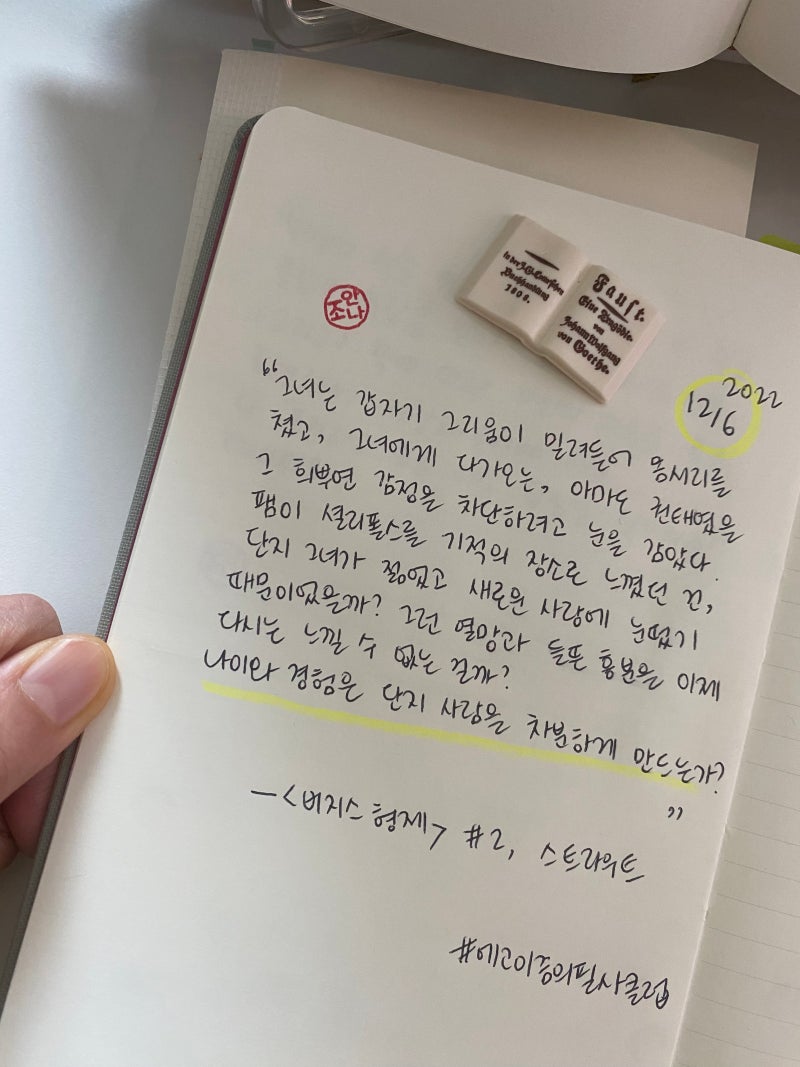 in der J. G. Cotta'schen
Buchhandlung
1808.
Faust.
Eine Tragödie.
von
Johann Wolfgang
von Goethe.
조안나
2022
12/6
"그녀는 갑자기 그리움이 밀려들어 몸서리를
쳤고, 그녀에게 다가오는, 아마도 권태였을
그 희뿌연 감정을 차단하려고 눈을 감았다.
팸이 셜리폴스를 기적의 장소로 느꼈던 건,
단지 그녀가 젊었고 새로운 사랑에 눈떴기
때문이었을까? 그런 열망과 들뜬 흥분을 이제
다시는 느낄 수 없는 걸까?
나이와 경험은 단지 사랑을 차분하게 만드는가?
"
—<버지스 형제> #2, 스트라우트
#에고이즘의필사클럽